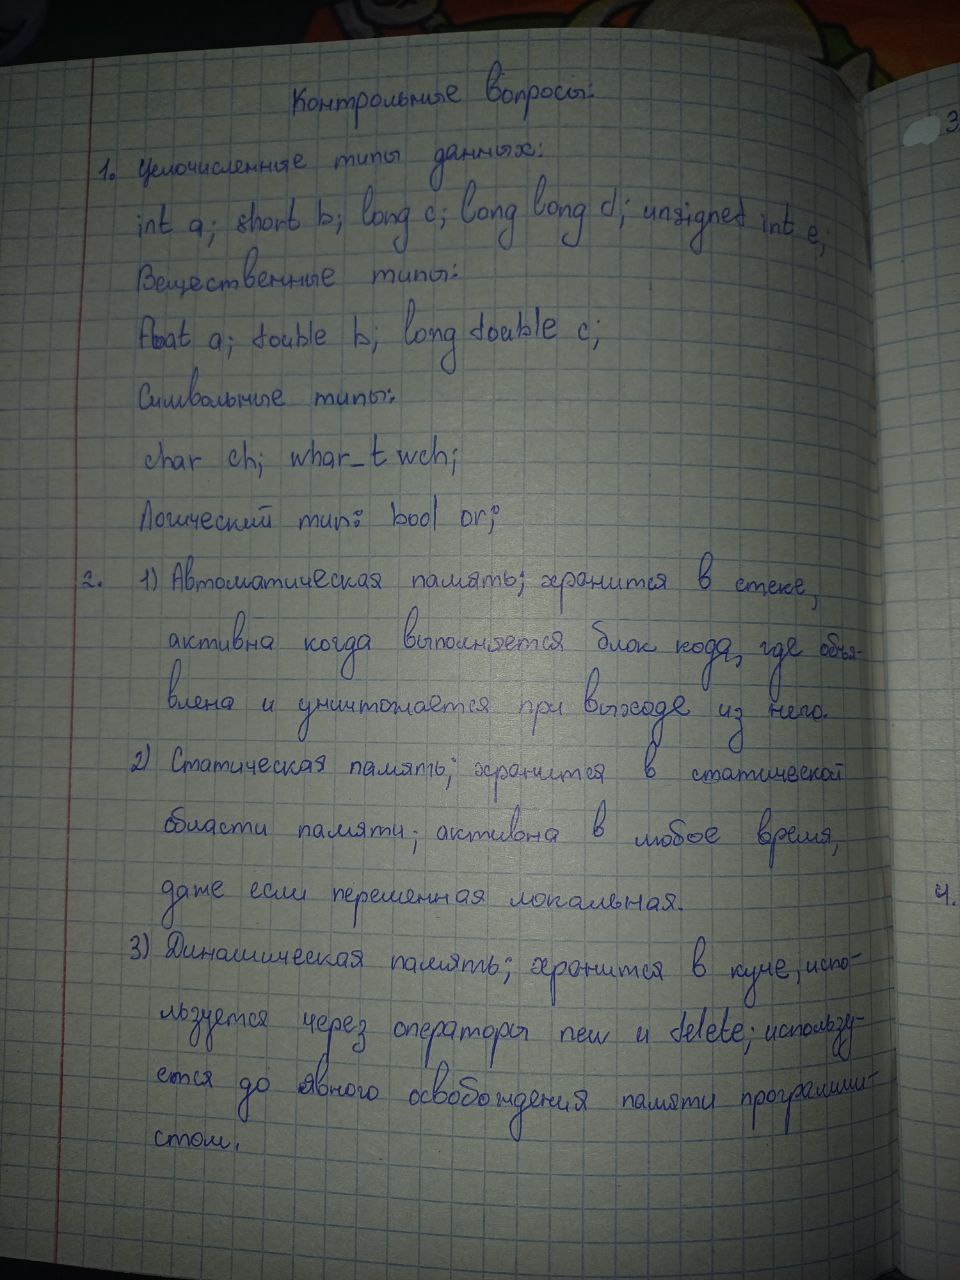 Контрольные вопросы:
1. Целочисленные типы данных:
int a; short b; long c; long long d; unsigned int e;
Вещественные типы:
float a; double b; long double c;
Символьные типы:
char ch; whar_t wch;
Логический тип: bool or;
2. 1) Автоматическая память; хранится в стеке,
активна когда выполняется блок кода, где объя-
влена и уничтожается при выходе из него.
2) Статическая память; хранится в статической
области памяти; активна в любое время,
даже если переменная локальная.
3) Динамическая память; хранится в куче, испо-
льзуется через операторы new и delete; использу-
ется до явного освобождения памяти программи-
стом.
3
4.